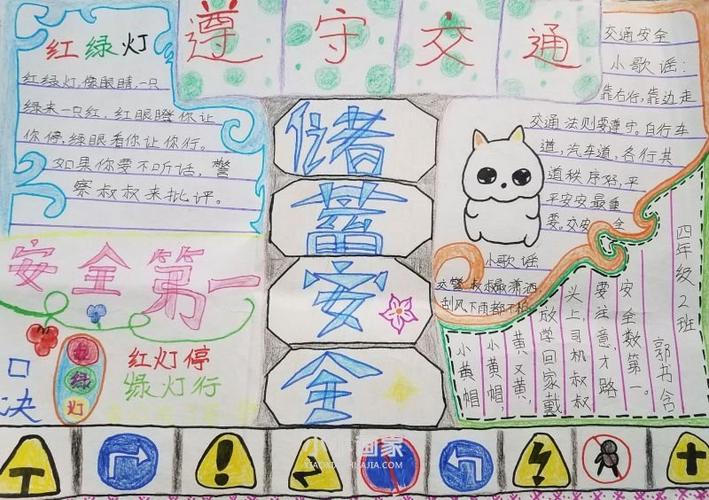 遵守交通
红绿灯
红绿灯,像眼睛,一只
绿来一只红,红眼瞪你让
你停,绿眼看你让你行。
如果你要不听话,警
察叔叔来批评。
储蓄安全
交通安全
小歌谣:
靠右行,靠边走
交通法则要遵守。自行车
道,汽车道,各行其
道秩序好,平
平安安最重
要。交安全
小歌谣
刮风下雨都不怕
安全第一
口决
红绿灯
红灯停
绿灯行
四年级2班
郭书含
安全数第一。
要注意才路
头上,司机叔叔
放学回家戴
小黄帽,
小黄帽,黄又黄,
小画家